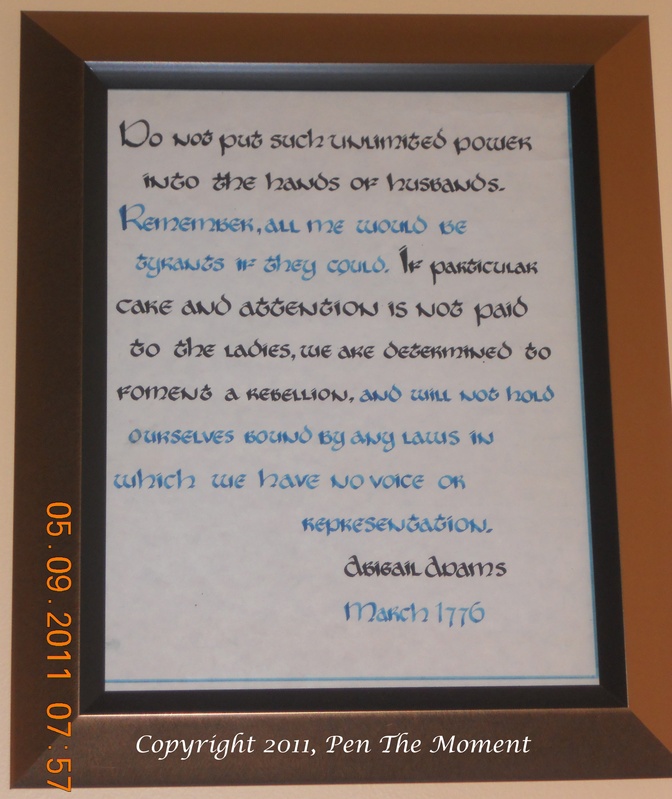 Do not put such unlimited power
into the hands of husbands.
Remember, all me would be
tyrants if they could. If particular
care and attention is not paid
to the ladies, we are determined to
foment a rebellion, and will not hold
ourselves bound by any laws in
which we have no voice or
representation.
Abigail Adams
March 1776
05.09.2011 07:57
Copyright 2011, Pen The Moment